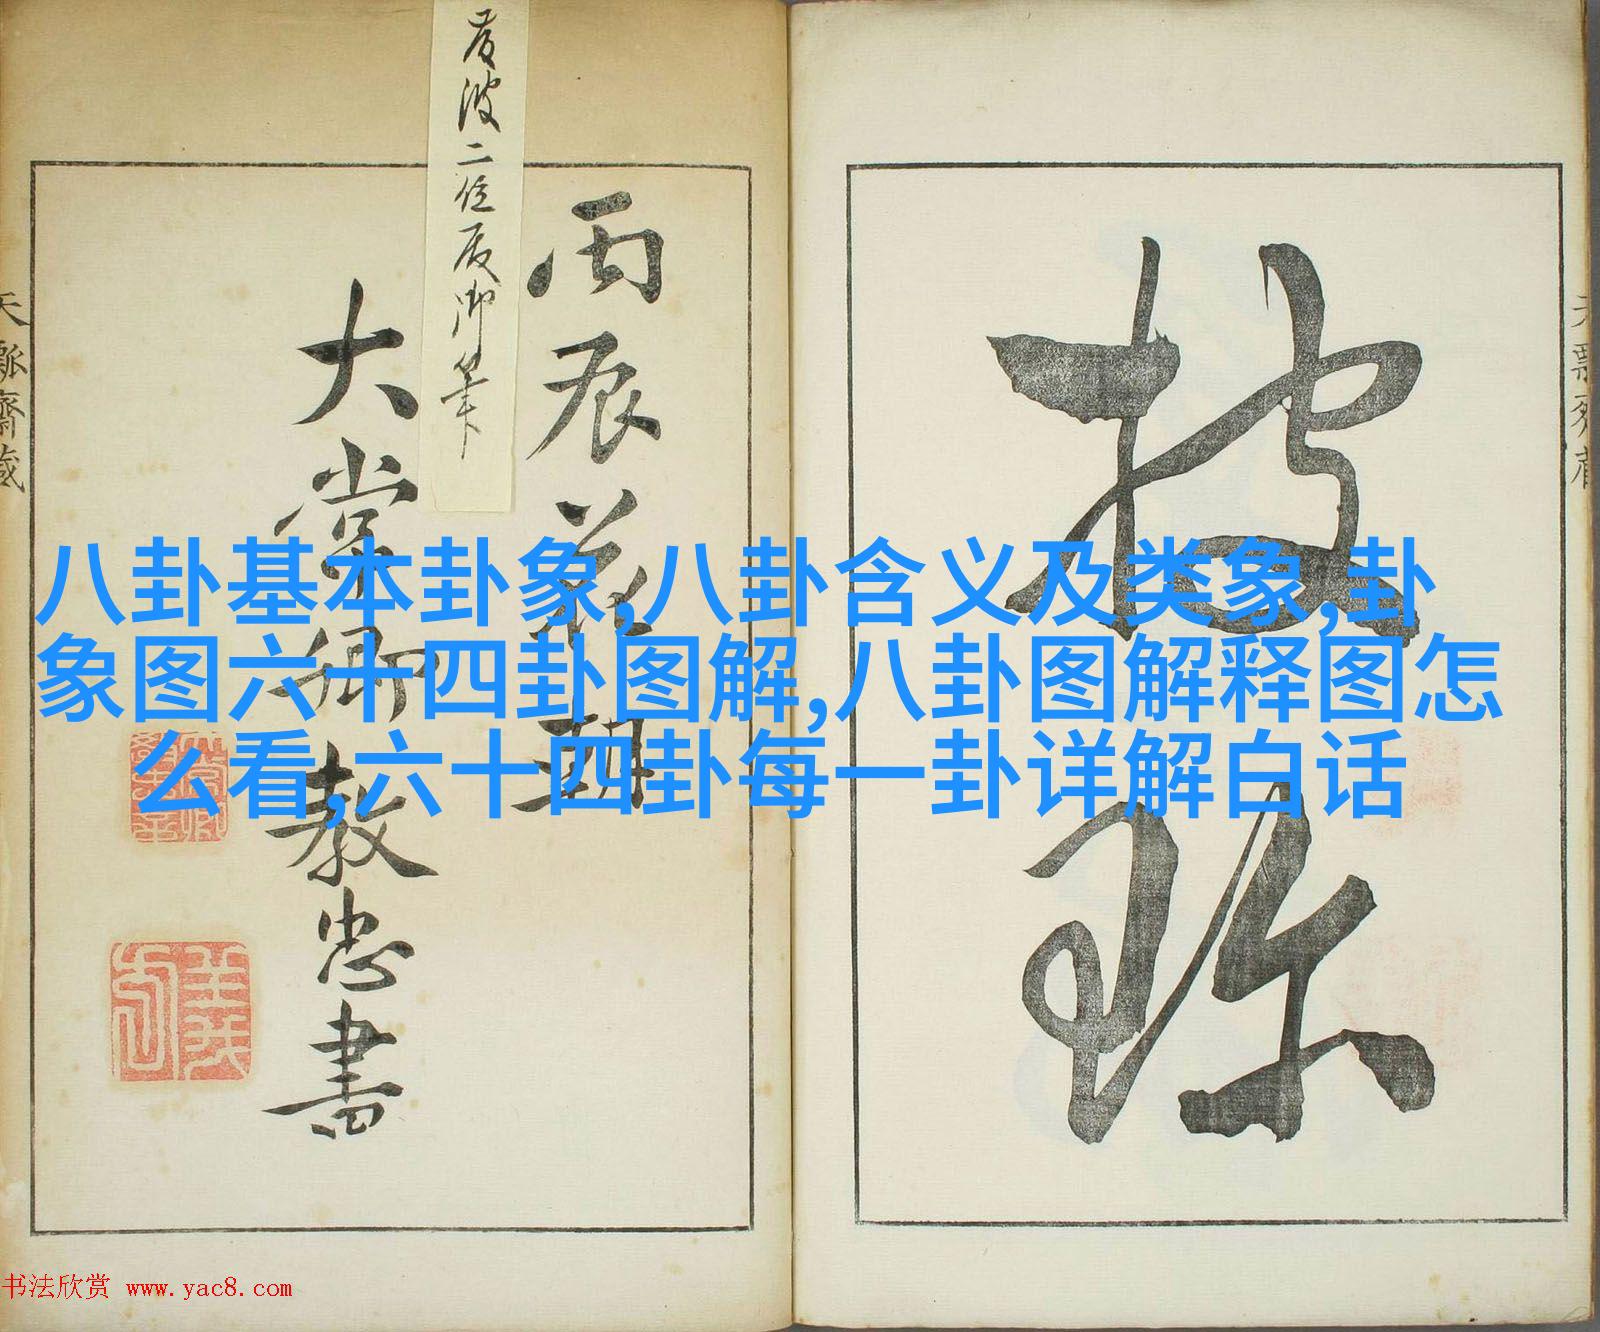 披
珎
丙辰花朝
大常卿教忠書
二位
御筆
八卦基本卦象,八卦含义及类象,卦
象图六十四卦图解,八卦图解释图怎
么看,六十四卦每一卦详解白话
天瓢齋蔵
书法欣赏 www.yac8.com